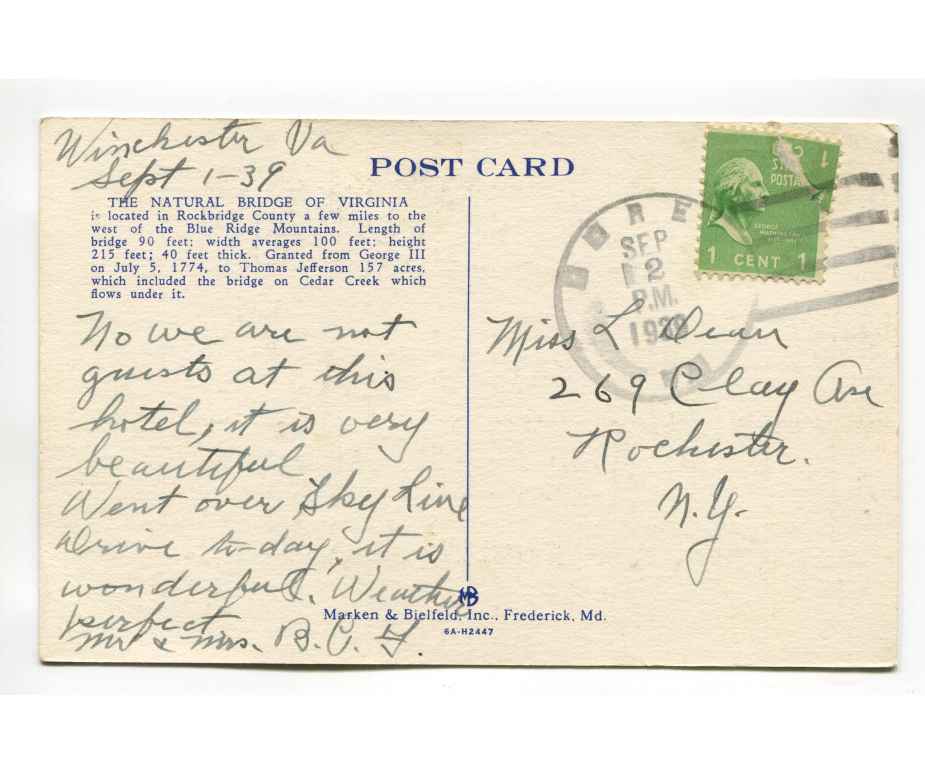 Winchester Va
Sept 1-39
POST CARD
THE NATURAL BRIDGE OF VIRGINIA
is located in Rockbridge County a few miles to the
west of the Blue Ridge Mountains. Length of
bridge 90 feet; width averages 100 feet; height
215 feet; 40 feet thick. Granted from George III
on July 5, 1774, to Thomas Jefferson 157 acres,
which included the bridge on Cedar Creek which
flows under it.
No we are not
guests at this
hotel, it is very
beautiful
Went over Sky Line
Drive to-day, it is
wonderful. Weather
perfect
Mr & Mrs. B. C. Y.
SEP
2
P.M.
GEORGE
WASHINGTON
1 CENT 1
Miss L Dean
269 Clay Ave
Rochester.
N.Y.
MB
Marken & Bielfeld, Inc., Frederick, Md.
6A-H2447